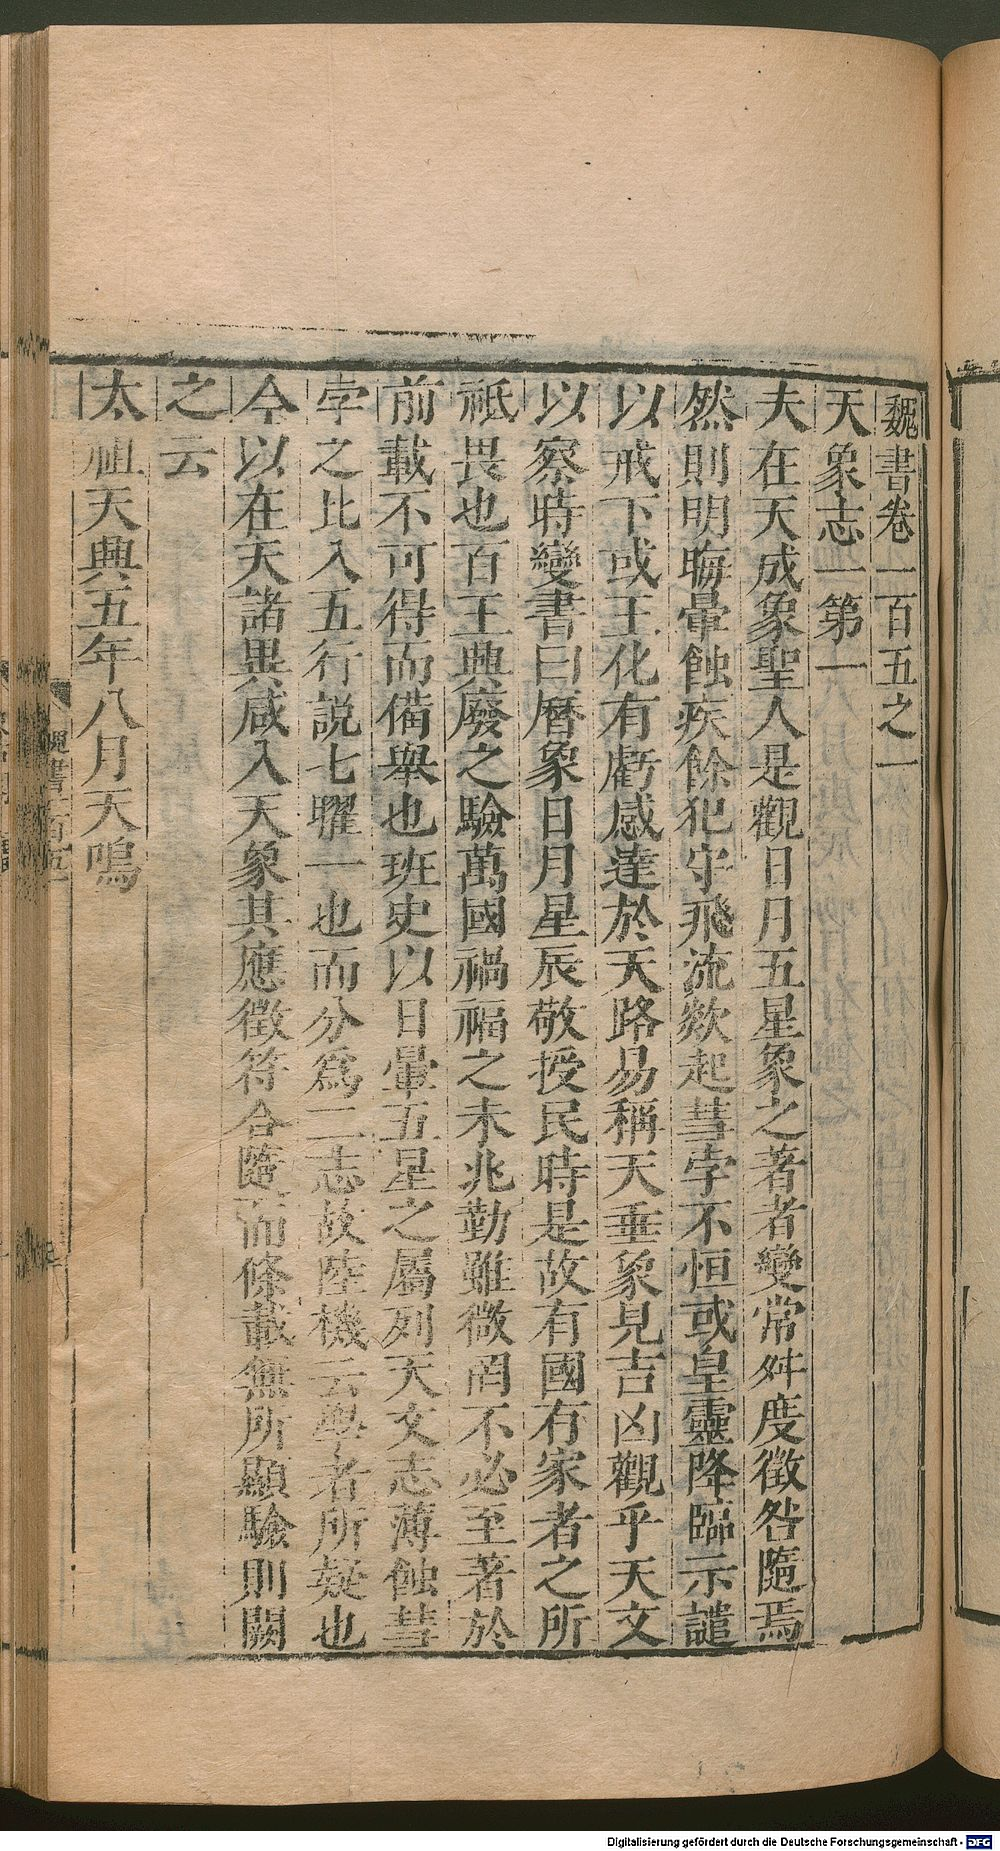 魏書卷一百五之一
天象志一第一
夫在天成象聖人是觀日月五星象之著者變常舛度徵咎隨焉
然則明晦暈蝕疾餘犯守飛流欻起彗孛不恒或皇靈降臨示譴
以戒下或王化有虧感達於天路易稱天垂象見吉凶觀乎天文
以察時變書曰曆象日月星辰敬授民時是故有國有家者之所
祗畏也百王興廢之驗萬國禍福之未兆勤雖微罔不必至著於
前載不可得而備舉也班史以日暈五星之屬列天文志薄蝕彗
孛之比入五行說七曜一也而分爲二志故陸機云學者所疑也
今以在天諸異咸入天象其應徵符合隨而條載無所顯驗則闕
之云
太祖天興五年八月天鳴
魏書一百五
Digitalisierung gefördert durch die Deutsche Forschungsgemeinschaft - DFG